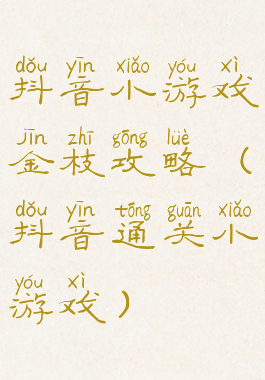 dǒu yīn xiǎo yóu xì
抖音小游戏
jīn zhī gōng lüè
金枝攻略（
dǒu yīn tōng guān xiǎo
抖音通关小
yóu xì
游戏）